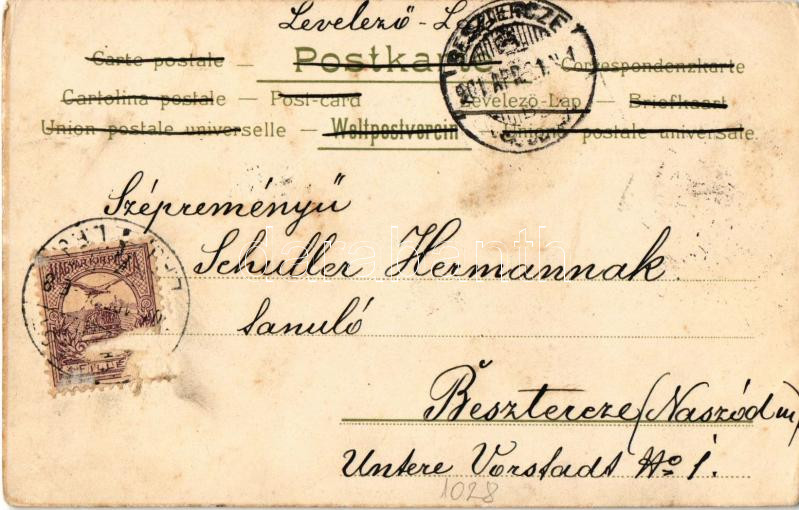 Levelező-
Carte postale — Postkarte — Correspondenzkarte
Cartolina postale — Post-card Levelező-Lap — Briefkaart
Union postale universelle — Weltpostverein — Unione postale universale.
BESZTERCZE
901 APR
Szépreményű
Schuller Hermannak
tanuló
MAGYAR KIR. POSTA
FILLÉR
Besztercze (Naszód m)
Untere Vorstadt No 1.
1028
darabanth